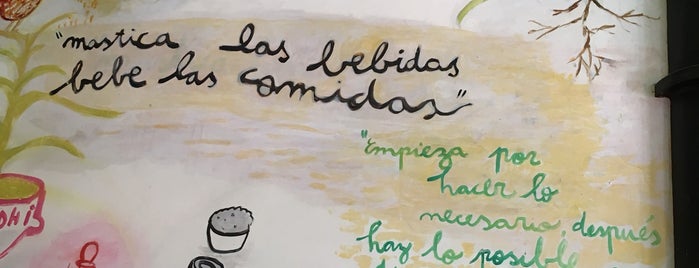 "mastica las bebidas
bebe las comidas"
"Empieza por
hacer lo
necesario, después
haz lo posible
OHI